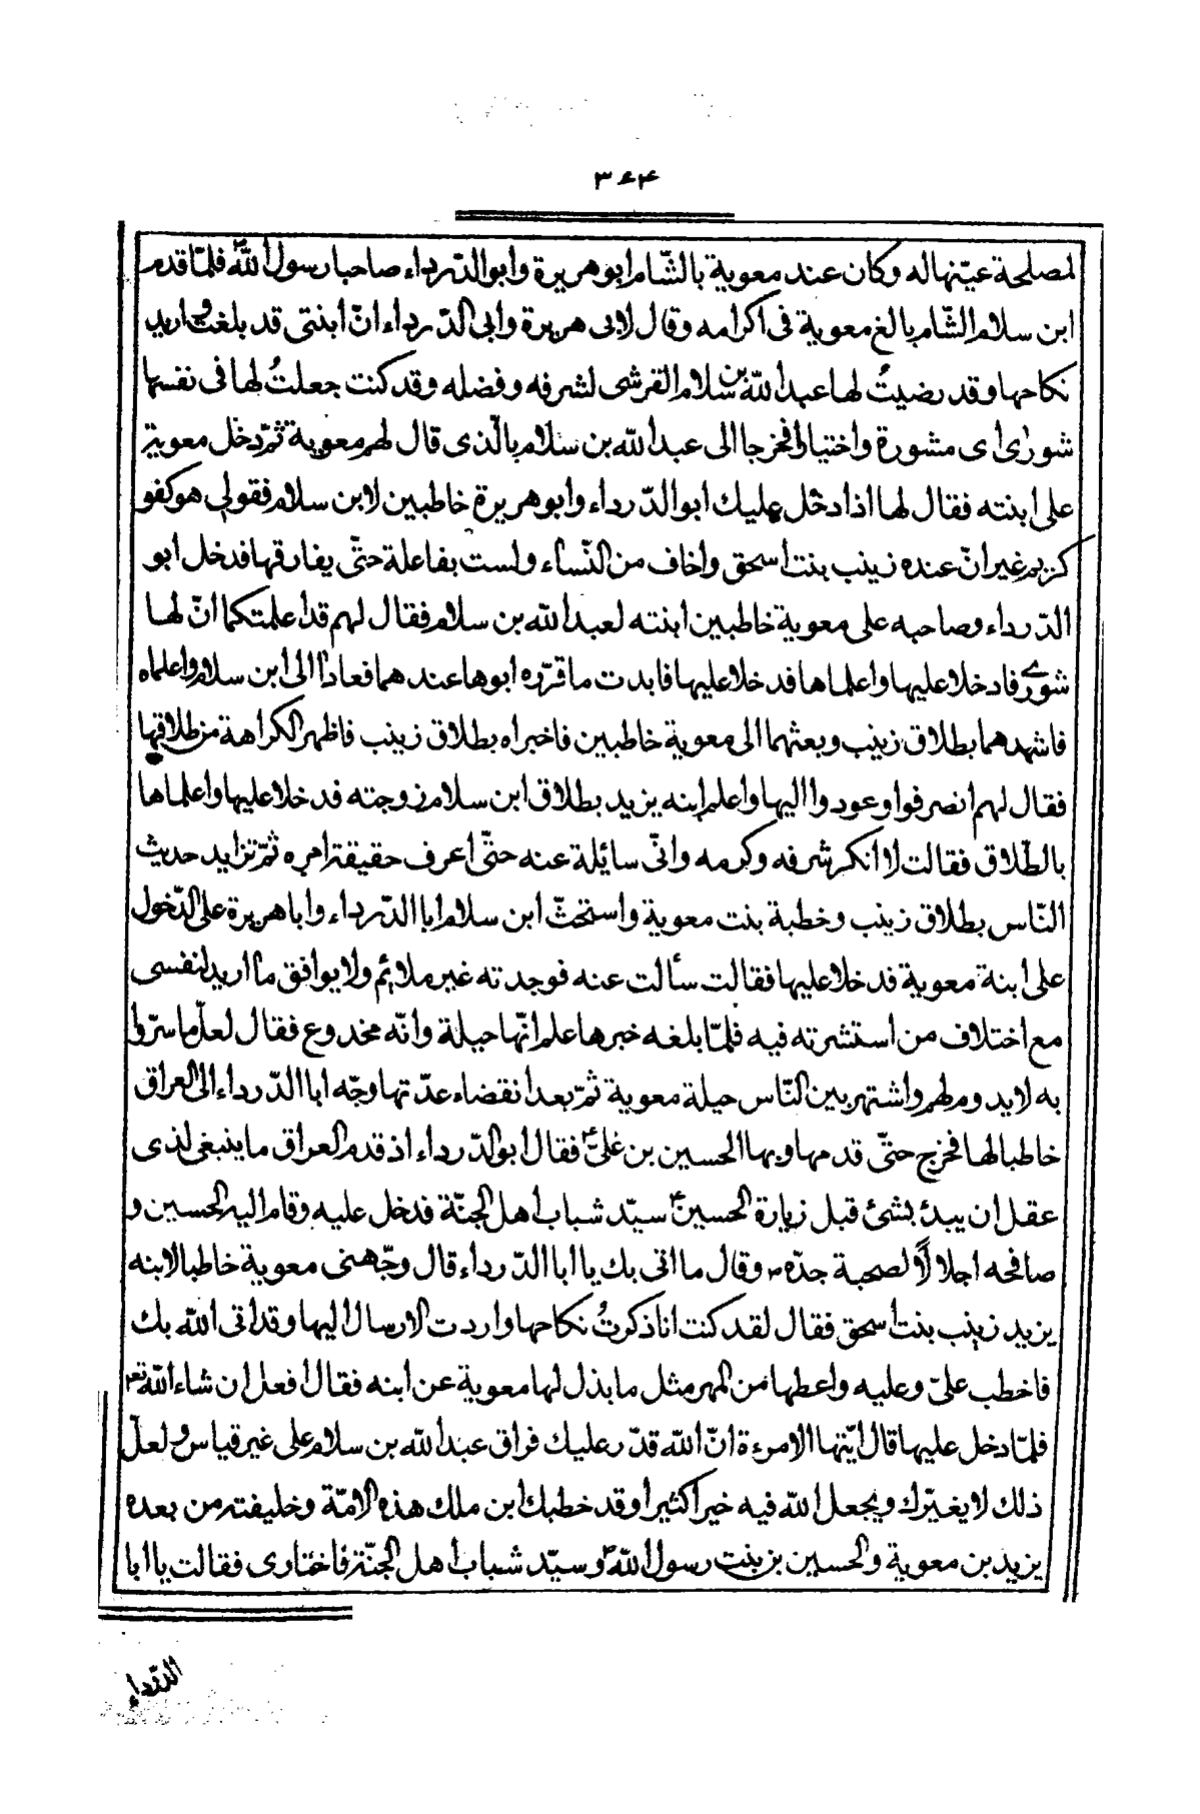 ٣٤٤
لمصلحة عيّنها له وكان عند معوية بالشّام ابو هريرة وابو الدّرداء صاحبا رسول اللّه ص فلمّا قدم
ابن سلام الشّام بالغ معوية فى اكرامه وقال لابى هريرة وابى الدّرداء انّ ابنتى قد بلغت واريد
نكاحها وقد رضيتُ لها عبد اللّه بن سلام القرشى لشرفه وفضله وقد كنت جعلتُ لها فى نفسها
شورى اى مشورة واختيارا فخرجا الى عبد اللّه بن سلام بالّذى قال لهم معوية ثمّ دخل معوية
على ابنته فقال لها اذا دخل عليك ابو الدّرداء وابو هريرة خاطبين لابن سلام فقولى هو كفو
كريم غير انّ عنده زينب بنت اسحق واخاف من النّساء ولست بفاعلة حتّى يفارقها فدخل ابو
الدّرداء وصاحبه على معوية خاطبين ابنته لعبد اللّه بن سلام فقال لهم قد اعلمتكما انّ لها
شورى فادخلا عليها واعلماها فدخلا عليها فابدت ما قرّره ابوها عندهما فعادا الى ابن سلام واعلماه
فاشهدهما بطلاق زينب وبعثهما الى معوية خاطبين فاخبراه بطلاق زينب فاظهر الكراهة من طلاقها
فقال لهم انصرفوا وعودوا اليها واعلم ابنه يزيد بطلاق ابن سلام زوجته فدخلا عليها واعلماها
بالطّلاق فقالت لا انكر شرفه وكرمه وانّى سائلة عنه حتّى اعرف حقيقة امره ثمّ تزايد حديث
النّاس بطلاق زينب وخطبة بنت معوية واستحثّ ابن سلام ابا الدّرداء وابا هريرة على الدّخول
على ابنة معوية فدخلا عليها فقالت سألت عنه فوجدته غير ملائم ولا يوافق ما اريد لنفسى
مع اختلاف من استشرته فيه فلمّا بلغه خبرها علم انّها حيلة وانّه مخدوع فقال لعلّ ما سرّوا
به لا يدوم لهم واشتهر بين النّاس حيلة معوية ثمّ بعد انقضاء عدّتها وجّه ابا الدّرداء الى العراق
خاطبا لها فخرج حتّى قدمها وبها الحسين بن علىّ ع فقال ابو الدّرداء اذ قدم العراق ما ينبغى لذى
عقل ان يبدئ بشئ قبل زيارة الحسين ع سيّد شباب اهل الجنّة فدخل عليه وقام اليه الحسين و
صافحه اجلالًا لصحبة جدّه ص وقال ما اتى بك يا ابا الدّرداء قال وجّهنى معوية خاطبا لابنه
يزيد زينب بنت اسحق فقال لقد كنت انا ذكرتُ نكاحها واردت الارسال اليها وقد اتى اللّه بك
فاخطب علىّ وعليه واعطها من المهر مثل ما بذل لها معوية عن ابنه فقال افعل ان شاء اللّه تعم
فلمّا دخل عليها قال ايّتها الامرءة انّ اللّه قدّر عليك فراق عبد اللّه بن سلام على غير قياس ولعلّ
ذلك لا يغيّرك ويجعل اللّه فيه خيرا كثيرا وقد خطبك ابن ملك هذه الامّة وخليفته من بعده
يزيد بن معوية والحسين بن بنت رسول اللّه ص وسيّد شباب اهل الجنّة فاختارى فقالت يا ابا
الدّرداء